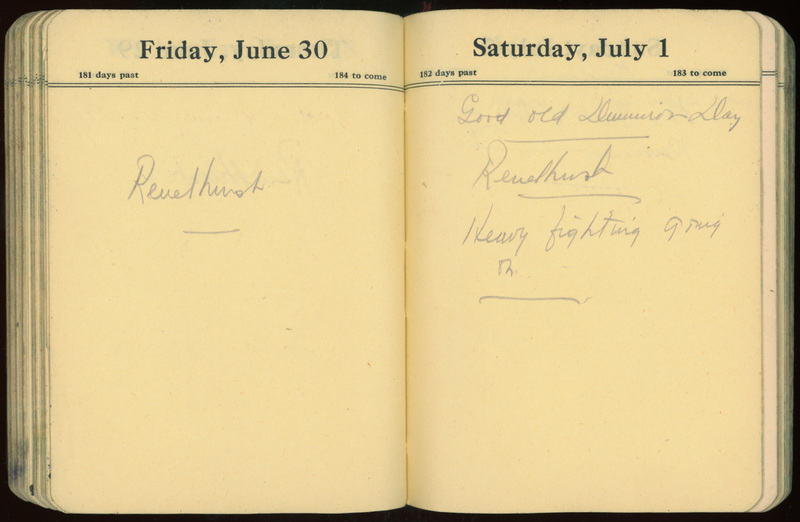 Friday, June 30
181 days past 184 to come
Renelhurst
Saturday, July 1
182 days past 183 to come
Good old Dominion Day
Renelhurst
Heavy fighting going
on.